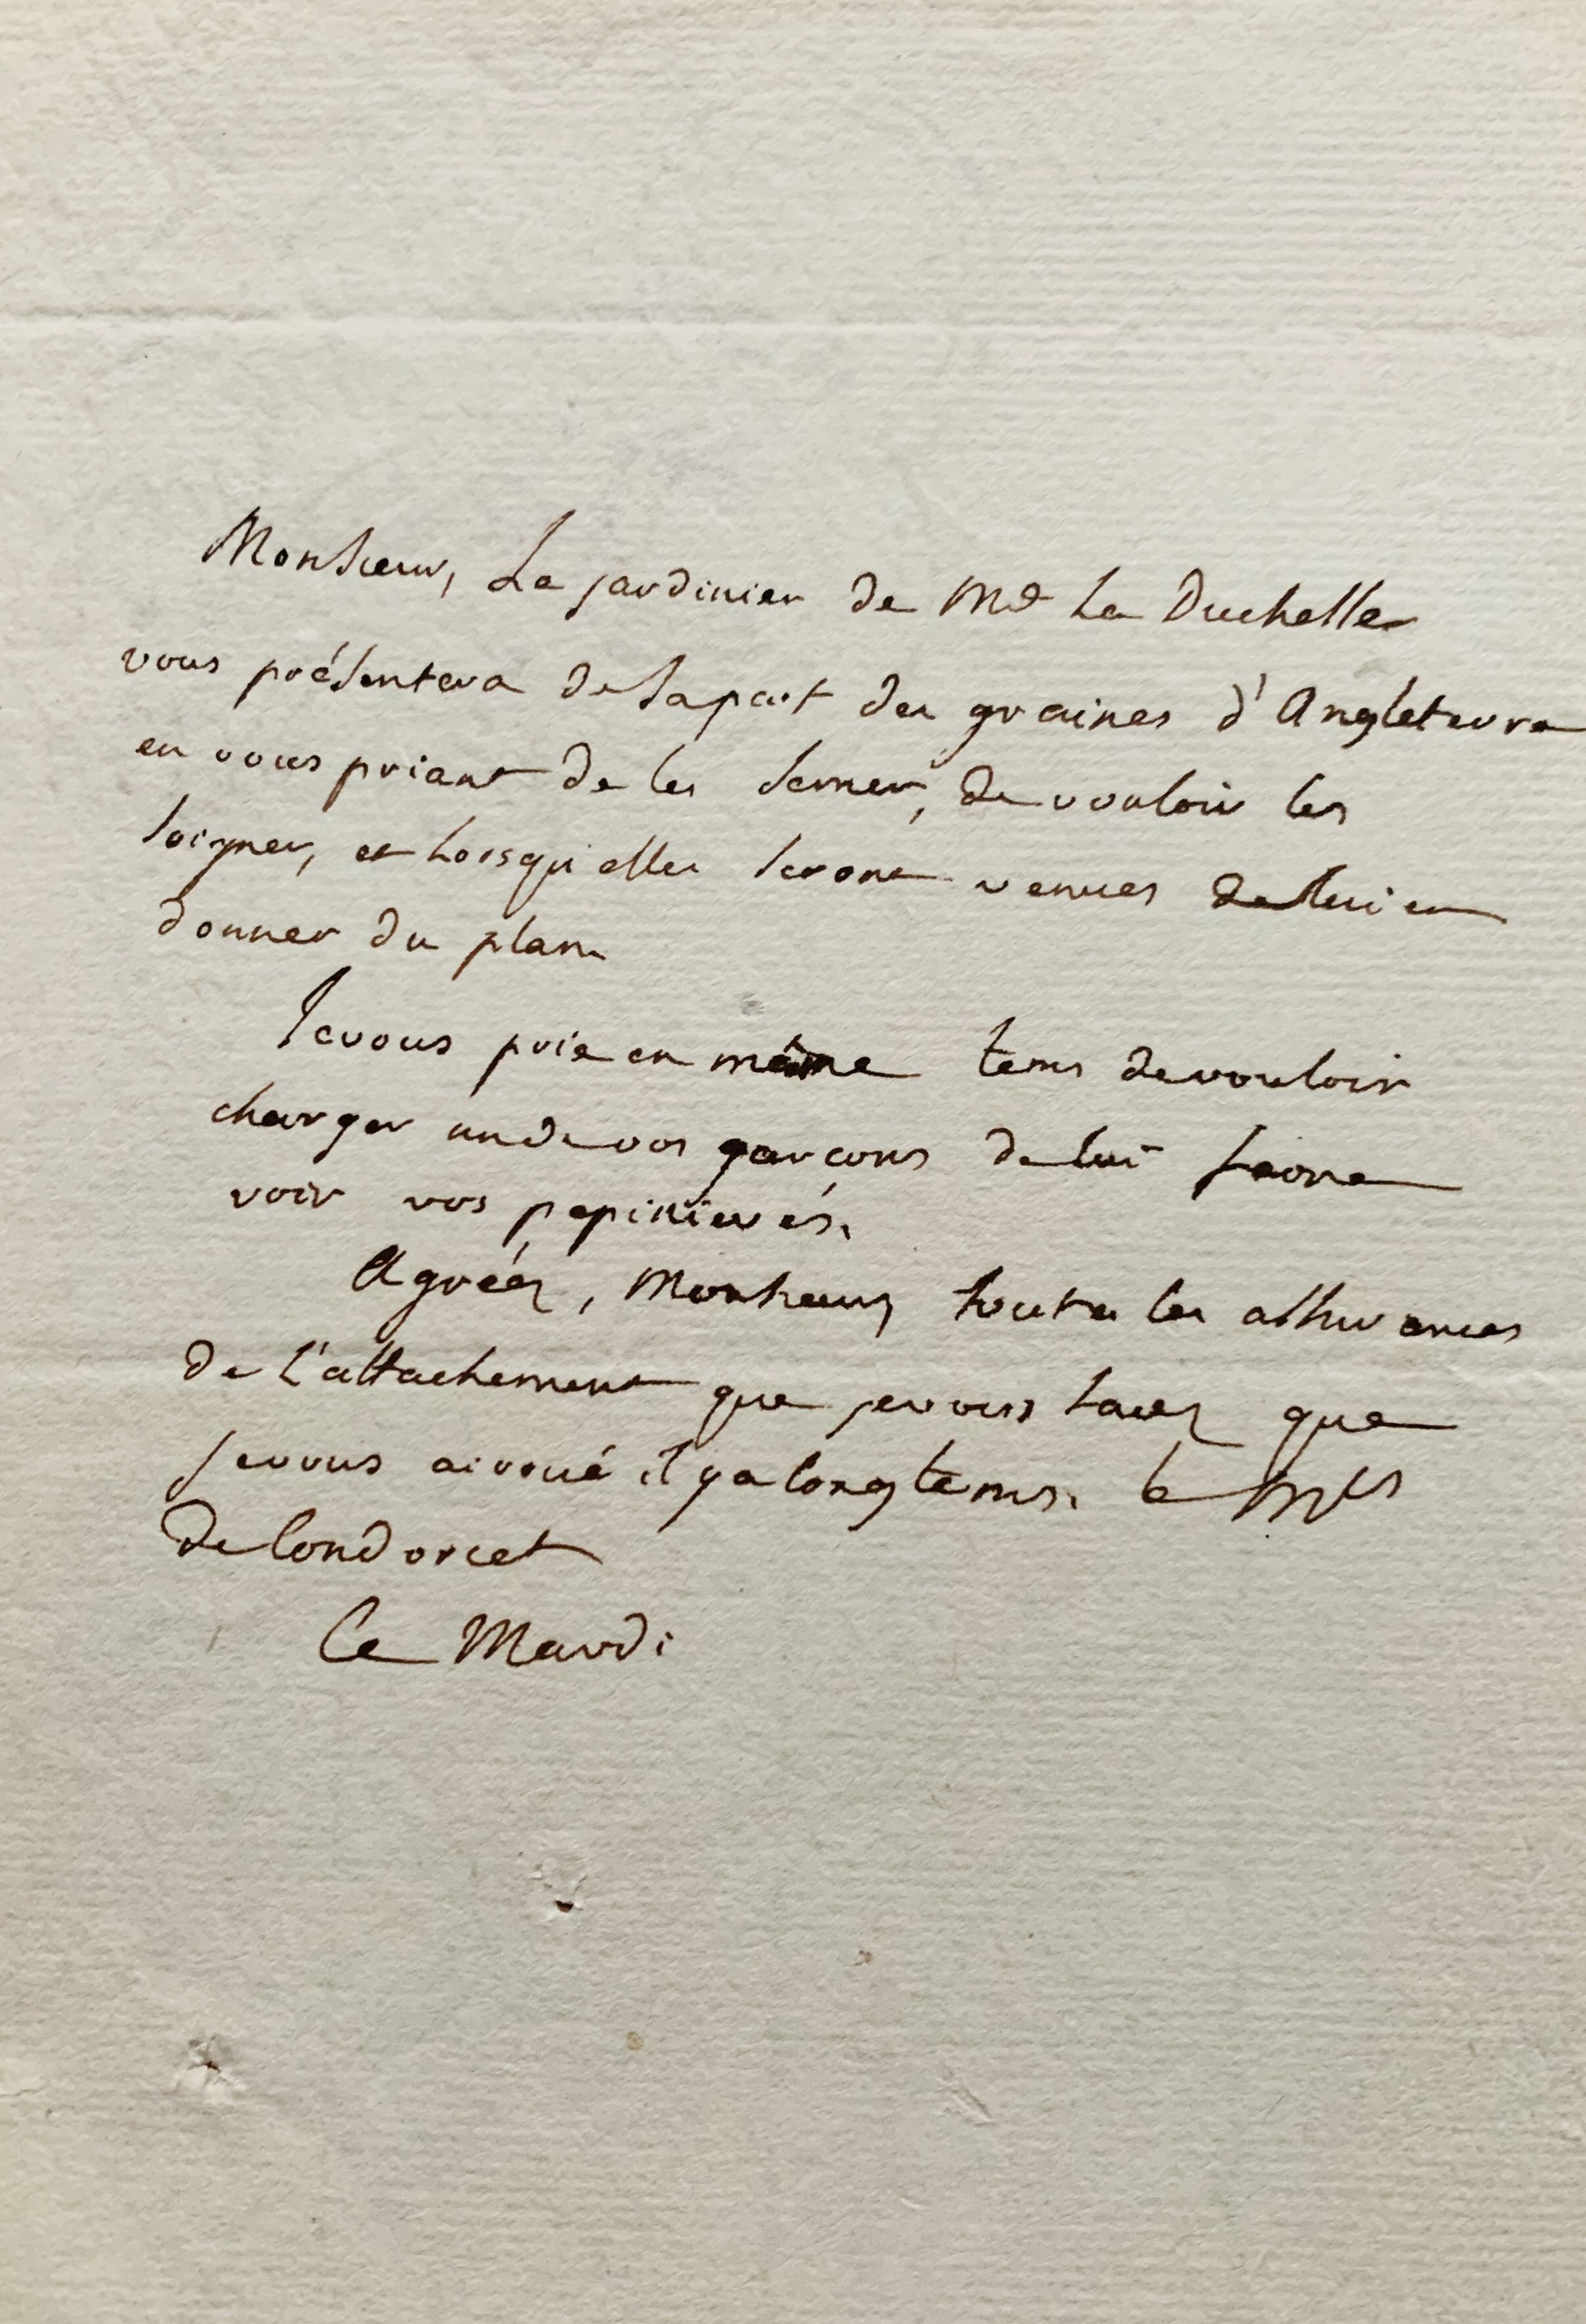 Monsieur, Le jardinier de Md La Duchesse
vous présentera de sa part des graines d'Angleterre
en vous priant de les semer, de vouloir les
soigner, et Lorsqu'elles seront venues de lui en
donner du plan
Je vous prie en même tems de vouloir
charger un de vos garçons de lui faire
voir vos pepinierés.
Agréez, Monsieur, toutes les assurances
de L'attachement que je vous savez que
je vous ai voué il y a longtems. le Mis
de Condorcet
Ce Mardi